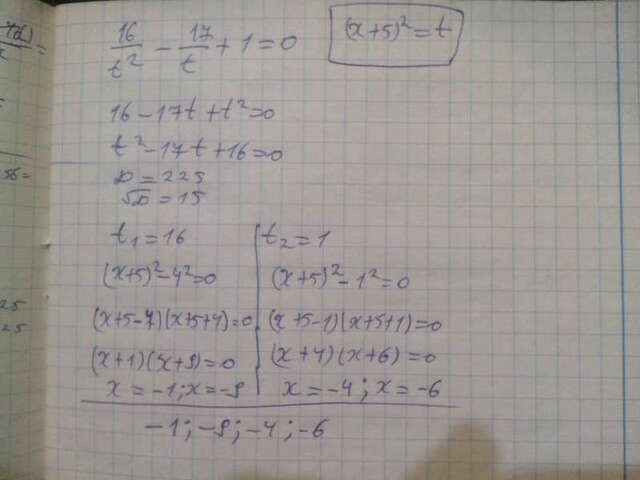 16/t² − 17/t + 1 = 0
(x+5)² = t
16 − 17t + t² = 0
t² − 17t + 16 = 0
D = 225
√D = 15
t₁ = 16
(x+5)² − 4² = 0
(x+5−4)(x+5+4) = 0
(x+1)(x+9) = 0
x = −1; x = −9
t₂ = 1
(x+5)² − 1² = 0
(x+5−1)(x+5+1) = 0
(x+4)(x+6) = 0
x = −4; x = −6
−1; −9; −4; −6